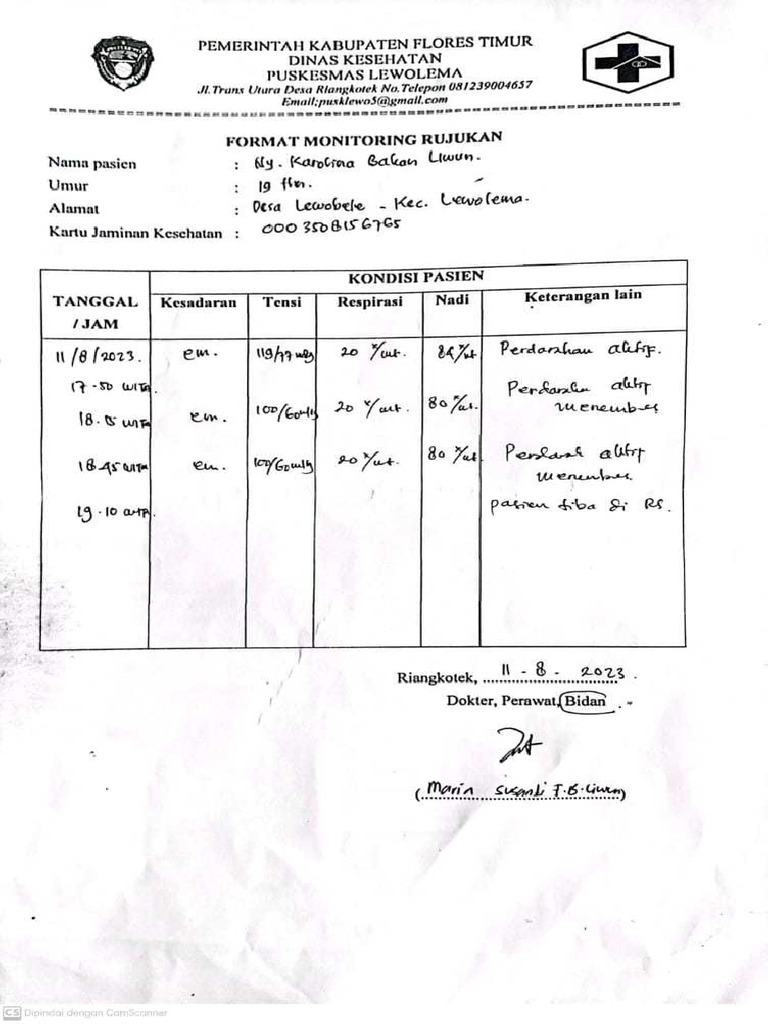 PEMERINTAH KABUPATEN FLORES TIMUR
DINAS KESEHATAN
PUSKESMAS LEWOLEMA
Jl. Trans Utara Desa Riangkotek No. Telepon 081239004657
Email;pusklewo5@gmail.com
FORMAT MONITORING RUJUKAN
Nama pasien : Ny. Karolina Bakan Liwun.
Umur : 19 thn.
Alamat : Desa Lewobele - Kec. Lewolema.
Kartu Jaminan Kesehatan : 0003508156765
KONDISI PASIEN
TANGGAL / JAM Kesadaran Tensi Respirasi Nadi Keterangan lain
11/8/2023. cm. 119/77 20 x/mt. 84 x/mt Perdarahan aktif.
17.50 WITA.
18. WITA cm. 100/60 20 x/mt. 80 x/mt. Perdarahan aktif merembes
18.45 WITA cm. 100/60 20 x/mt. 80 x/mt aktif merembes.
19.10 WITA. pasien tiba di RS.
Riangkotek, 11 - 8 - 2023.
Dokter, Perawat, Bidan
(Maria Susanti F.B. Liwun)
CS Dipindai dengan CamScanner